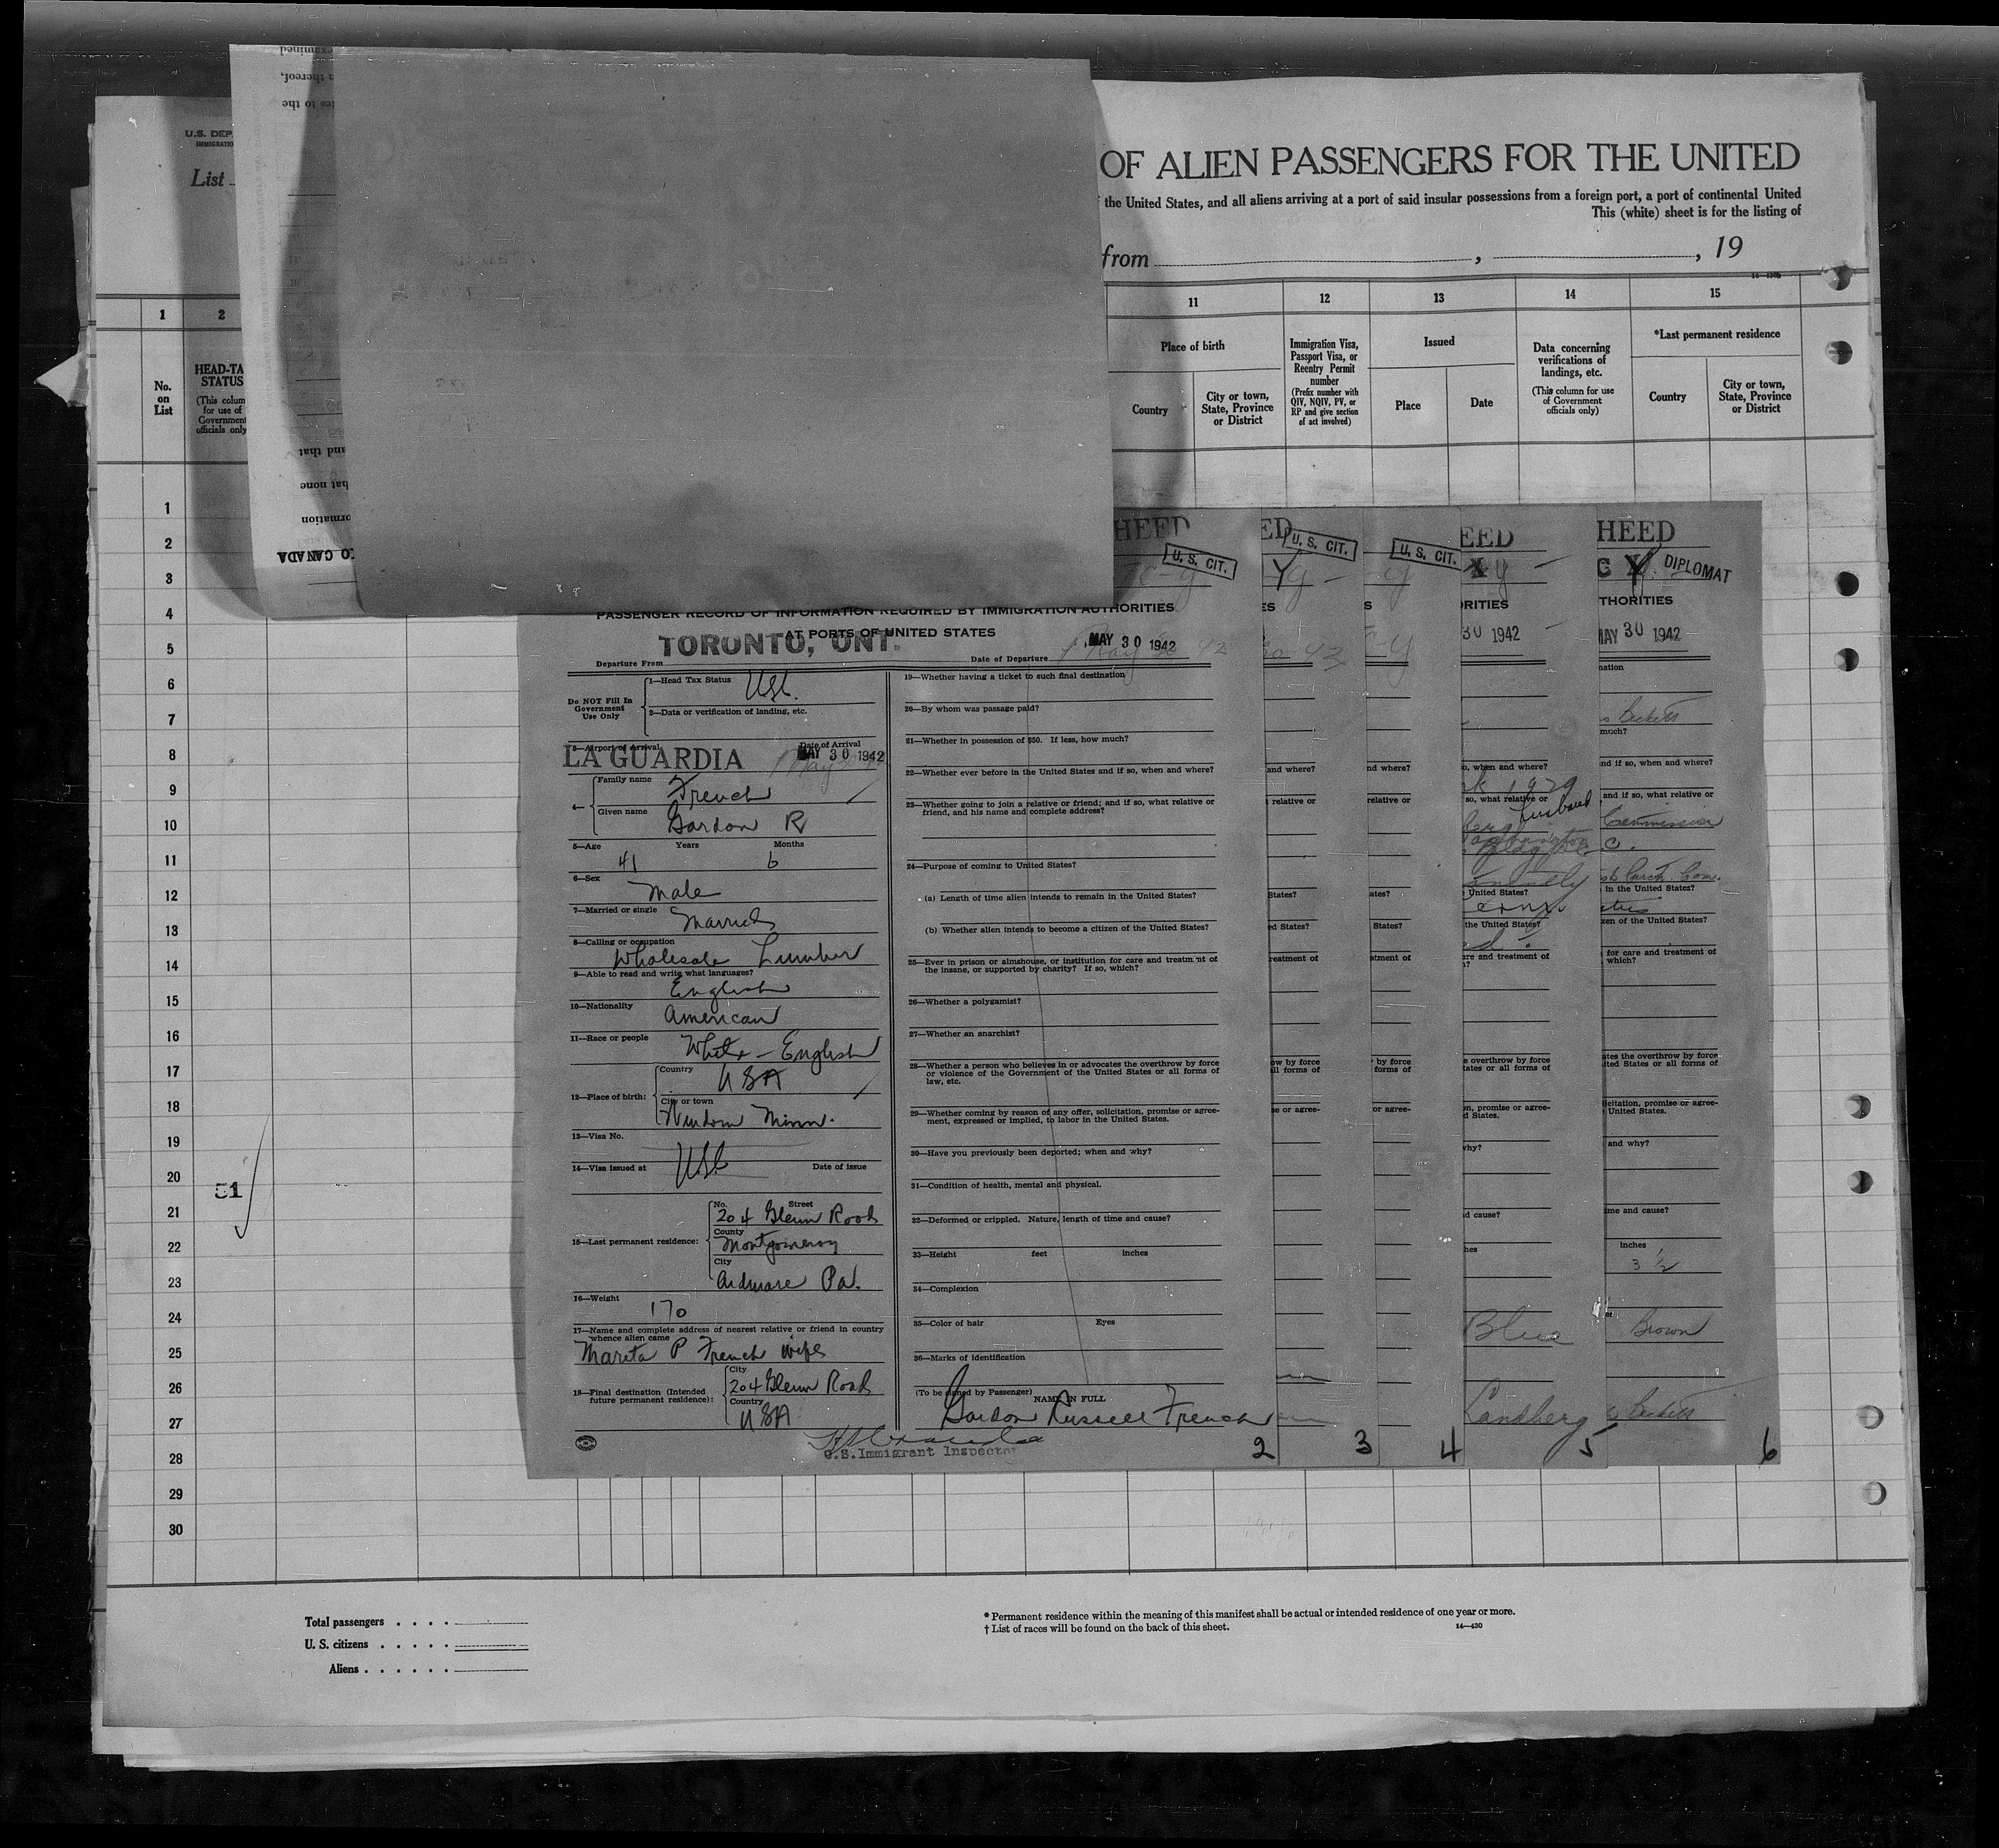 U.S. DEP
IMMIGRATIO
List
OF ALIEN PASSENGERS FOR THE UNITED
the United States, and all aliens arriving at a port of said insular possessions from a foreign port, a port of continental United
This (white) sheet is for the listing of
from , , 19
1 2 11 12 13 14 15
No. on List
HEAD-TA STATUS
(This colum for use of Government officials only)
Place of birth
Country
City or town, State, Province or District
Immigration Visa, Passport Visa, or Reentry Permit number
(Prefix number with QIV, NQIV, PV, or RP and give section of act involved)
Issued
Place
Date
Data concerning verifications of landings, etc.
(This column for use of Government officials only)
*Last permanent residence
Country
City or town, State, Province or District
1
2
3
4
5
6
7
8
9
10
11
12
13
14
15
16
17
18
19
20
51
21
22
23
24
25
26
27
28
29
30
O CANADA
HEED
U. S. CIT.
PASSENGER RECORD OF INFORMATION REQUIRED BY IMMIGRATION AUTHORITIES
AT PORTS OF UNITED STATES
TORONTO, ONT.
Departure From
Date of Departure MAY 30 1942
Do NOT Fill In Government Use Only
1—Head Tax Status USC.
2—Data or verification of landing, etc.
3—Airport of Arrival LA GUARDIA
Date of Arrival MAY 30 1942
4— Family name French
Given name Gordon R
5—Age 41 Years 6 Months
6—Sex Male
7—Married or single Married
8—Calling or occupation Wholesale Lumber
9—Able to read and write what languages?
English
10—Nationality American
11—Race or people White - English
12—Place of birth: Country USA
City or town Windom Minn.
13—Visa No.
14—Visa issued at USC Date of issue
15—Last permanent residence: No. Street 204 Glenn Road
County Montgomery
City Ardmore Pa.
16—Weight 170
17—Name and complete address of nearest relative or friend in country whence alien came
Marita P French wife
18—Final destination (Intended future permanent residence): City 204 Glenn Road
Country USA
19—Whether having a ticket to such final destination
20—By whom was passage paid?
21—Whether in possession of $50. If less, how much?
22—Whether ever before in the United States and if so, when and where?
23—Whether going to join a relative or friend; and if so, what relative or friend, and his name and complete address?
24—Purpose of coming to United States?
(a) Length of time alien intends to remain in the United States?
(b) Whether alien intends to become a citizen of the United States?
25—Ever in prison or almshouse, or institution for care and treatment of the insane, or supported by charity? If so, which?
26—Whether a polygamist?
27—Whether an anarchist?
28—Whether a person who believes in or advocates the overthrow by force or violence of the Government of the United States or all forms of law, etc.
29—Whether coming by reason of any offer, solicitation, promise or agreement, expressed or implied, to labor in the United States.
30—Have you previously been deported; when and why?
31—Condition of health, mental and physical.
32—Deformed or crippled. Nature, length of time and cause?
33—Height feet inches
34—Complexion
35—Color of hair Eyes
36—Marks of identification
(To be signed by Passenger)
NAME IN FULL
Gordon Russell French
U.S. Immigrant Inspector
2
ED
U. S. CIT.
3
U. S. CIT.
4
EED
30 1942
husband
Blue
Landberg
5
HEED
DIPLOMAT
THORITIES
MAY 30 1942
Commission
inches
3 1/2
Brown
6
Total passengers . . . .
U. S. citizens . . . . .
Aliens . . . . . .
* Permanent residence within the meaning of this manifest shall be actual or intended residence of one year or more.
† List of races will be found on the back of this sheet.
14—430